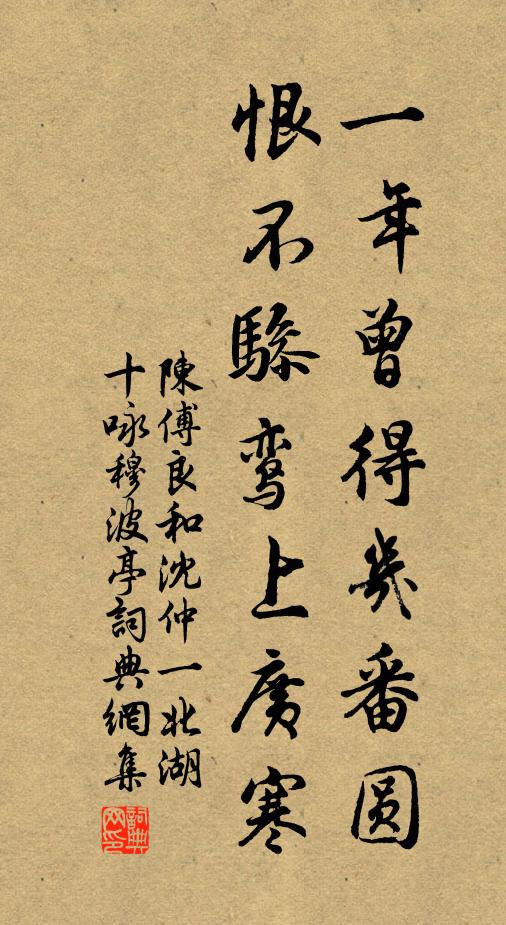 一年曾得幾番圓
恨不驂鸾上廣寒
陳傅良和沈仲一北湖
十咏穆波亭詞典網集
詞典網印